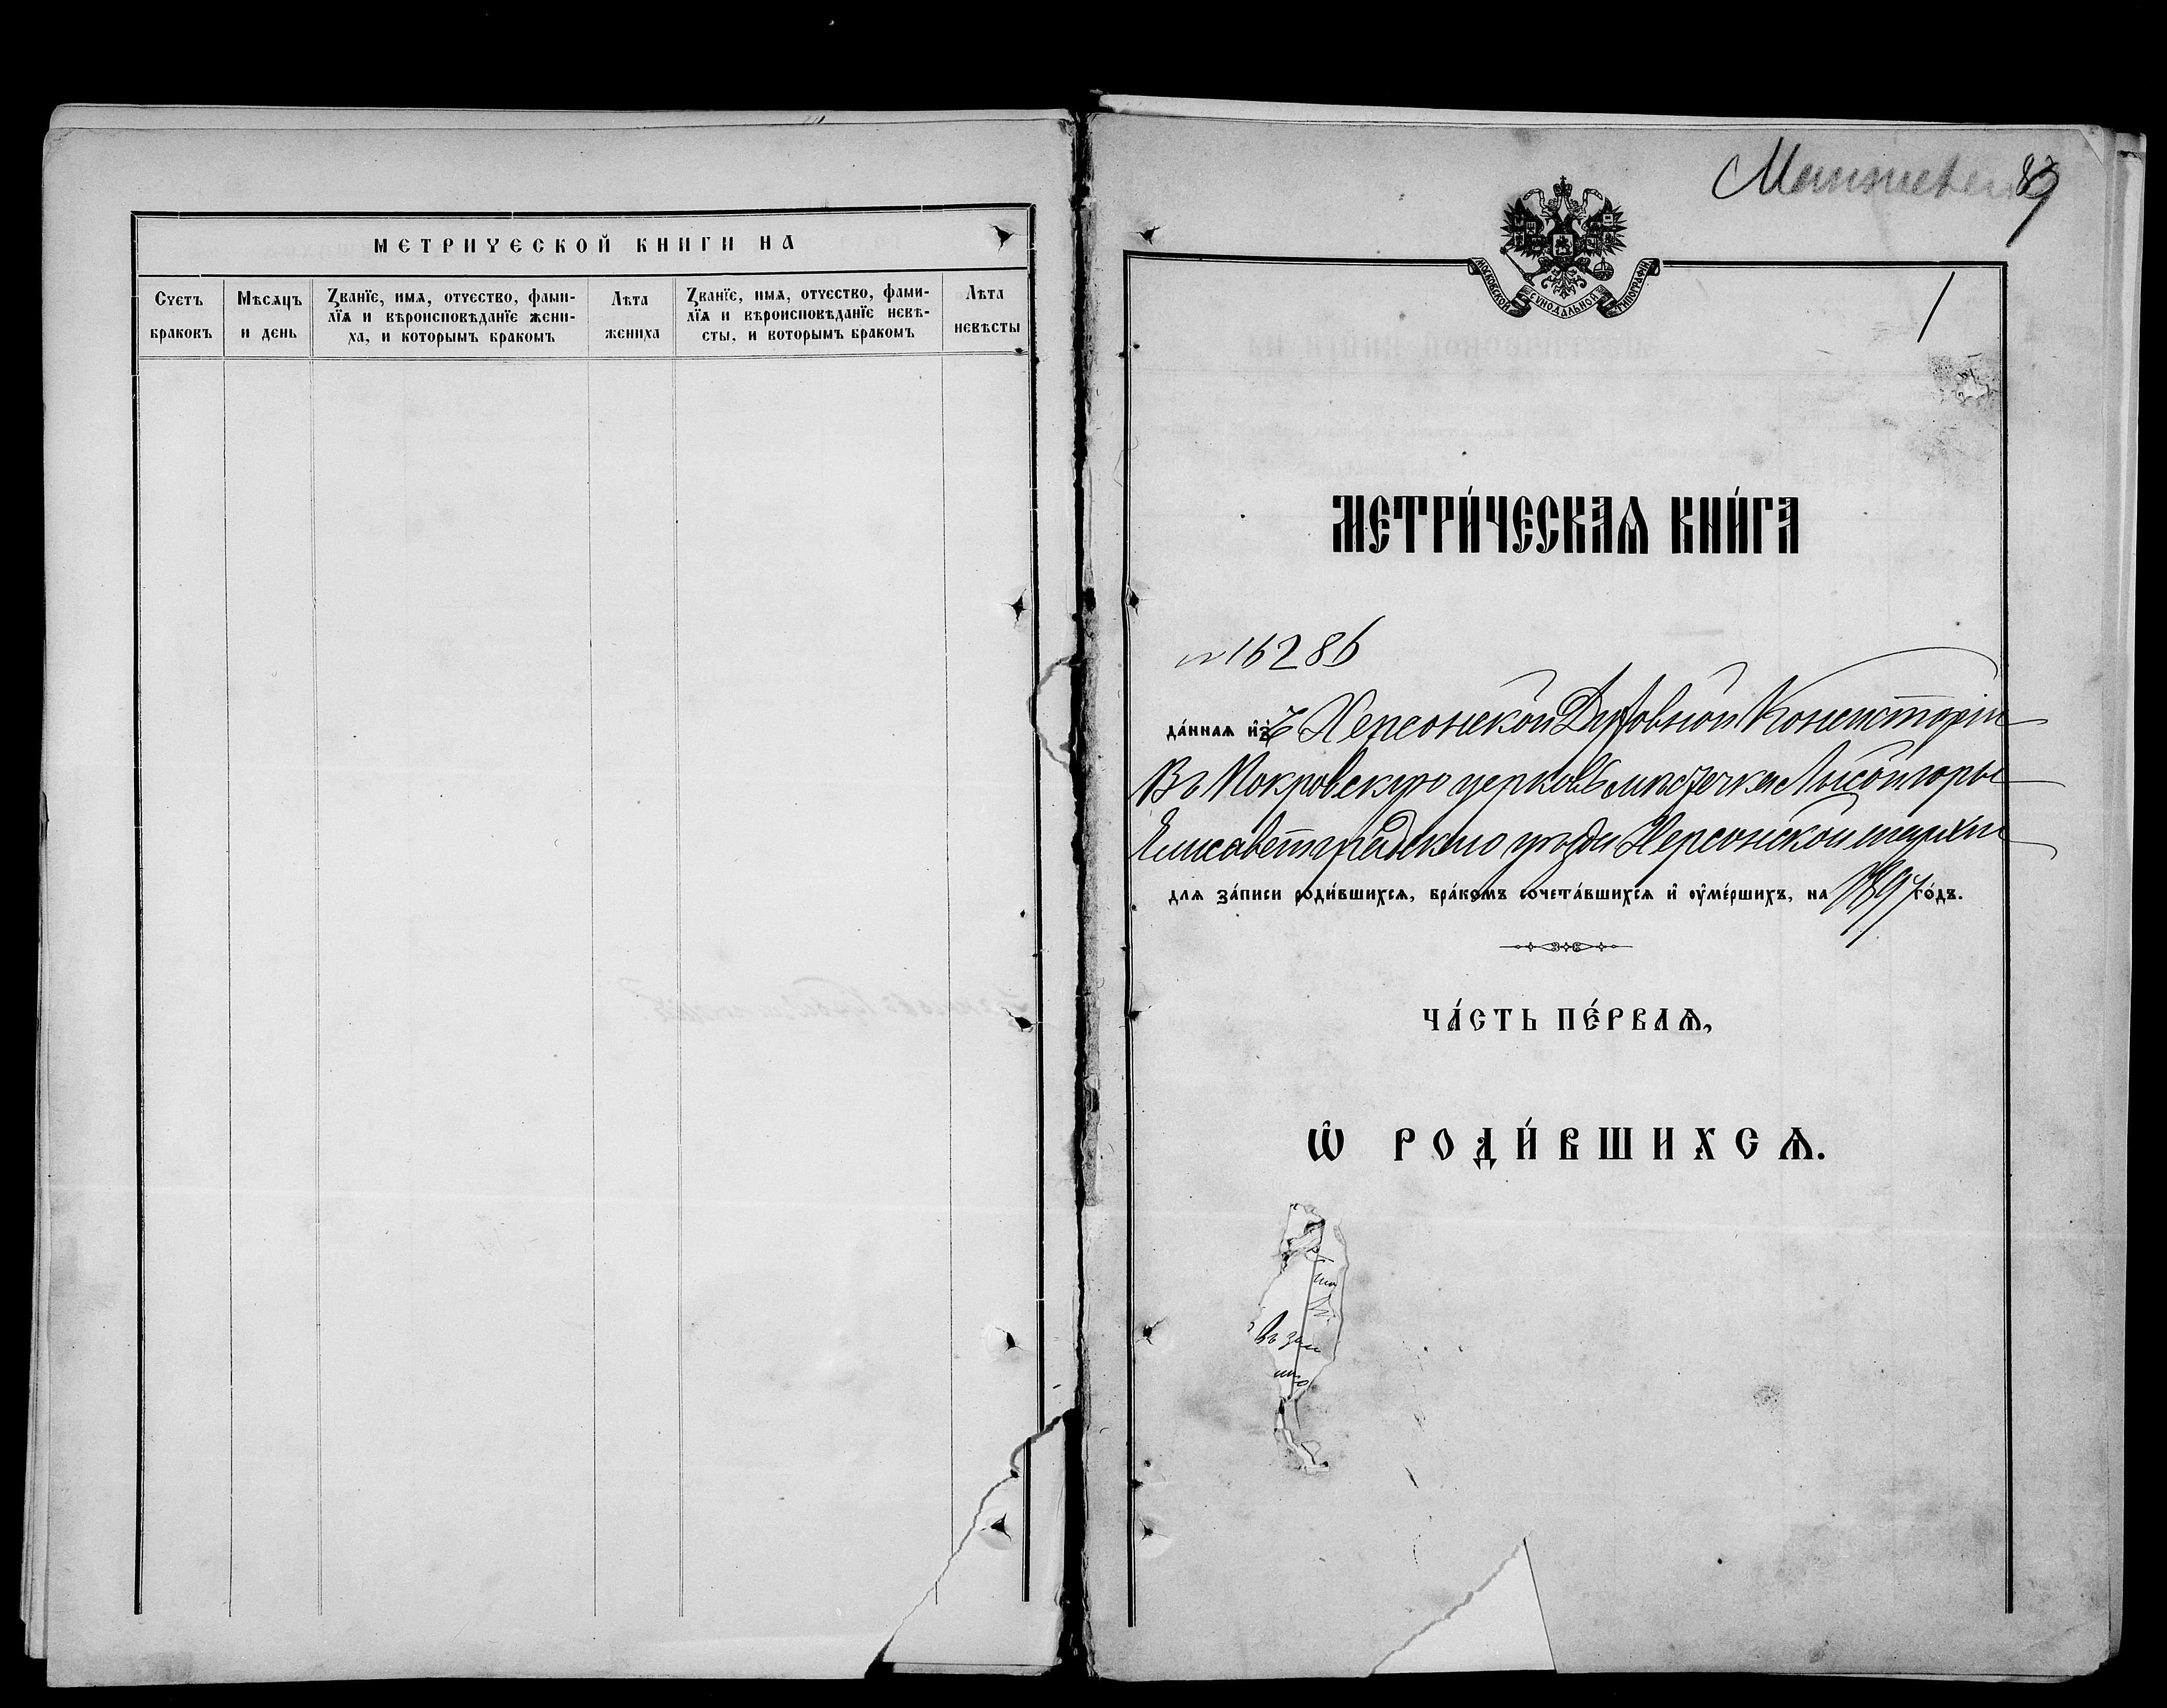 МЕТРИЧЕСКОЙ КНИГИ НА
Счетъ браковъ
Мѣсяцъ и день
Званїе, имя, отчество, фами-
лїя и вѣроисповѣданїе жени-
ха, и которымъ бракомъ
Лѣта жениха
Званїе, имя, отчество, фами-
лїя и вѣроисповѣданїе невѣ-
сты, и которымъ бракомъ
Лѣта невѣсты
89
МОСКОВСКОЙ СѴНОДАЛЬНОЙ ТИПОГРАФІИ
1
МЕТРИ́ЧЕСКАѦ КНИ́ГА
№ 16286
да́нная изъ Херсонской Духовной Консисторіи
Въ Покровскую церковь мѣстечка Лысой горы
Елисаветградскаго уѣзда Херсонской епархіи
для за́писи роди́вшихся, бра́комъ сочета́вшихся и ᲂуме́ршихъ, на 1897 го́дъ.
ЧА́СТЬ ПЕ́РВАѦ,
Ѡ РОДИ́ВШИХСѦ.